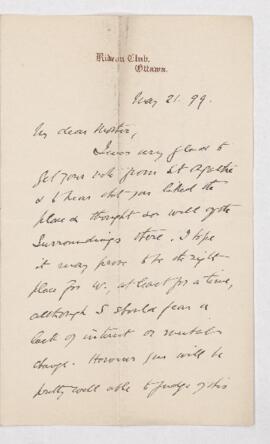 Rideau Club,
Ottawa.
May 21. 99.
My dear
I was very glad to
get your note from St Agathe
& to hear that you liked the
place & thought so well of the
surroundings there. I hope
it may prove to be the right
place for W., at least for a time,
although I should fear a
lack of interest or
change. However you will be
pretty well able to judge of this